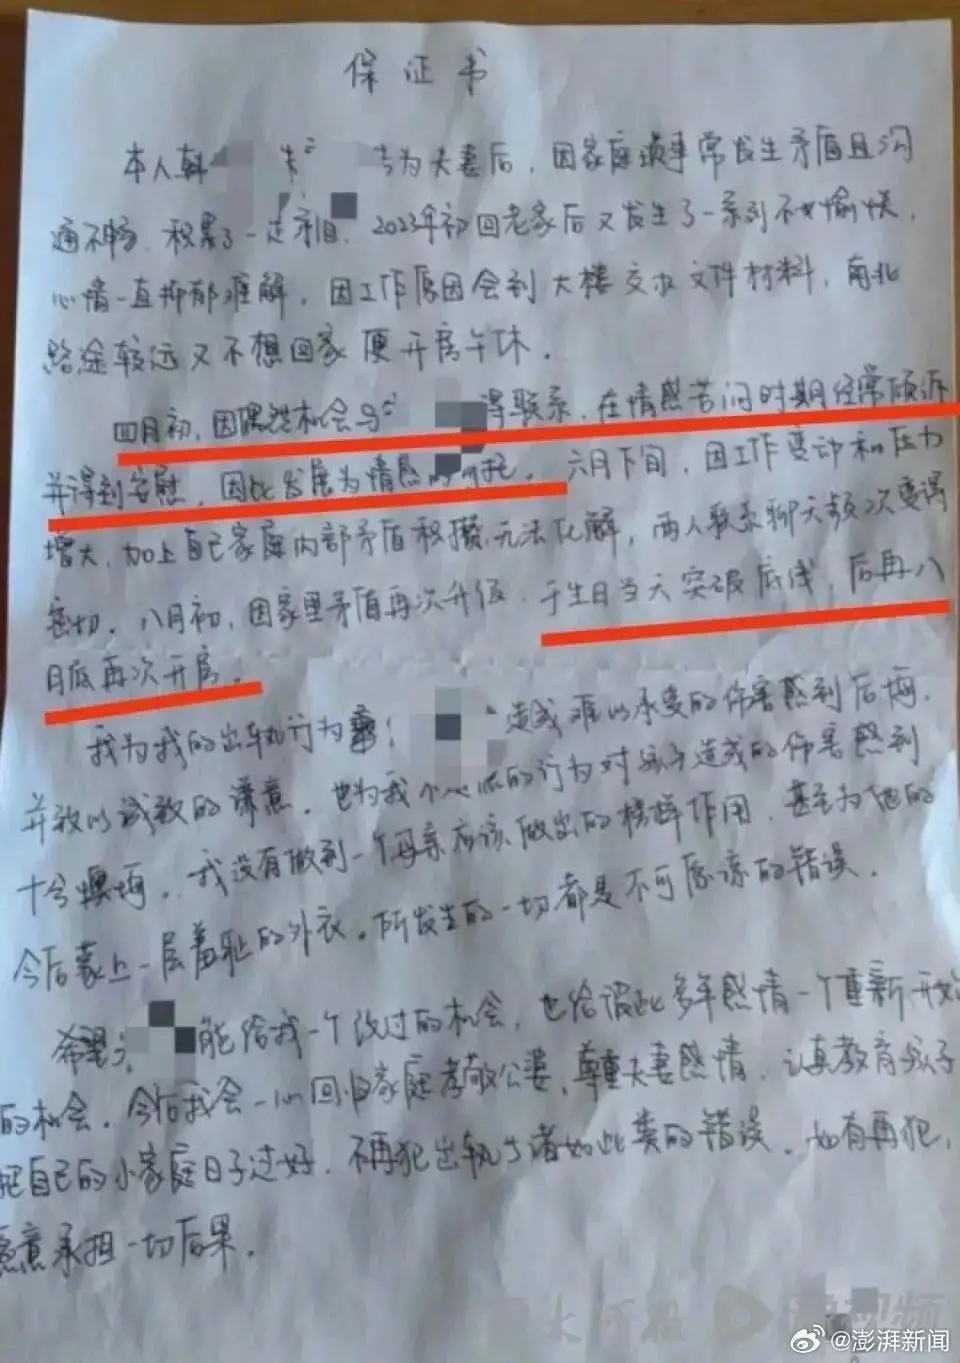 保证书
本人韩 朱 为夫妻后，因家庭琐事常发生矛盾且沟
通不畅，积累了一些矛盾，2023年初回老家后又发生了一系列不愉快，
心情一直抑郁难解，因工作原因会到大楼交收文件材料，南北
路途较远又不想回家便开房午休。
四月初，因偶然机会与 得联系，在情感苦闷时期经常倾诉
并得到安慰，因此发展为情感的寄托。六月下旬，因工作变动和压力
增大，加上自己家庭内部矛盾积攒无法化解，两人联系聊天频次变得
密切。八月初，因家里矛盾再次升级，于生日当天突破底线，后再八
月底再次开房。
我为我的出轨行为 造成难以承受的伤害感到后悔，
并致以诚致的谦意，也为我个人的行为对孩子造成的伤害感到
十分懊悔，我没有做到一个母亲应该做出的榜样作用，甚至为他的
今后蒙上一层羞耻的外衣。所发生的一切都是不可原谅的错误。
希望 能给我一个改过的机会，也给彼此多年感情一个重新开始
的机会，今后我会一心回归家庭孝敬公婆，尊重夫妻感情，认真教育孩子
把自己的小家庭日子过好，不再犯出轨诸如此类的错误，如有再犯，
愿意承担一切后果。
大河报
视频
@澎湃新闻